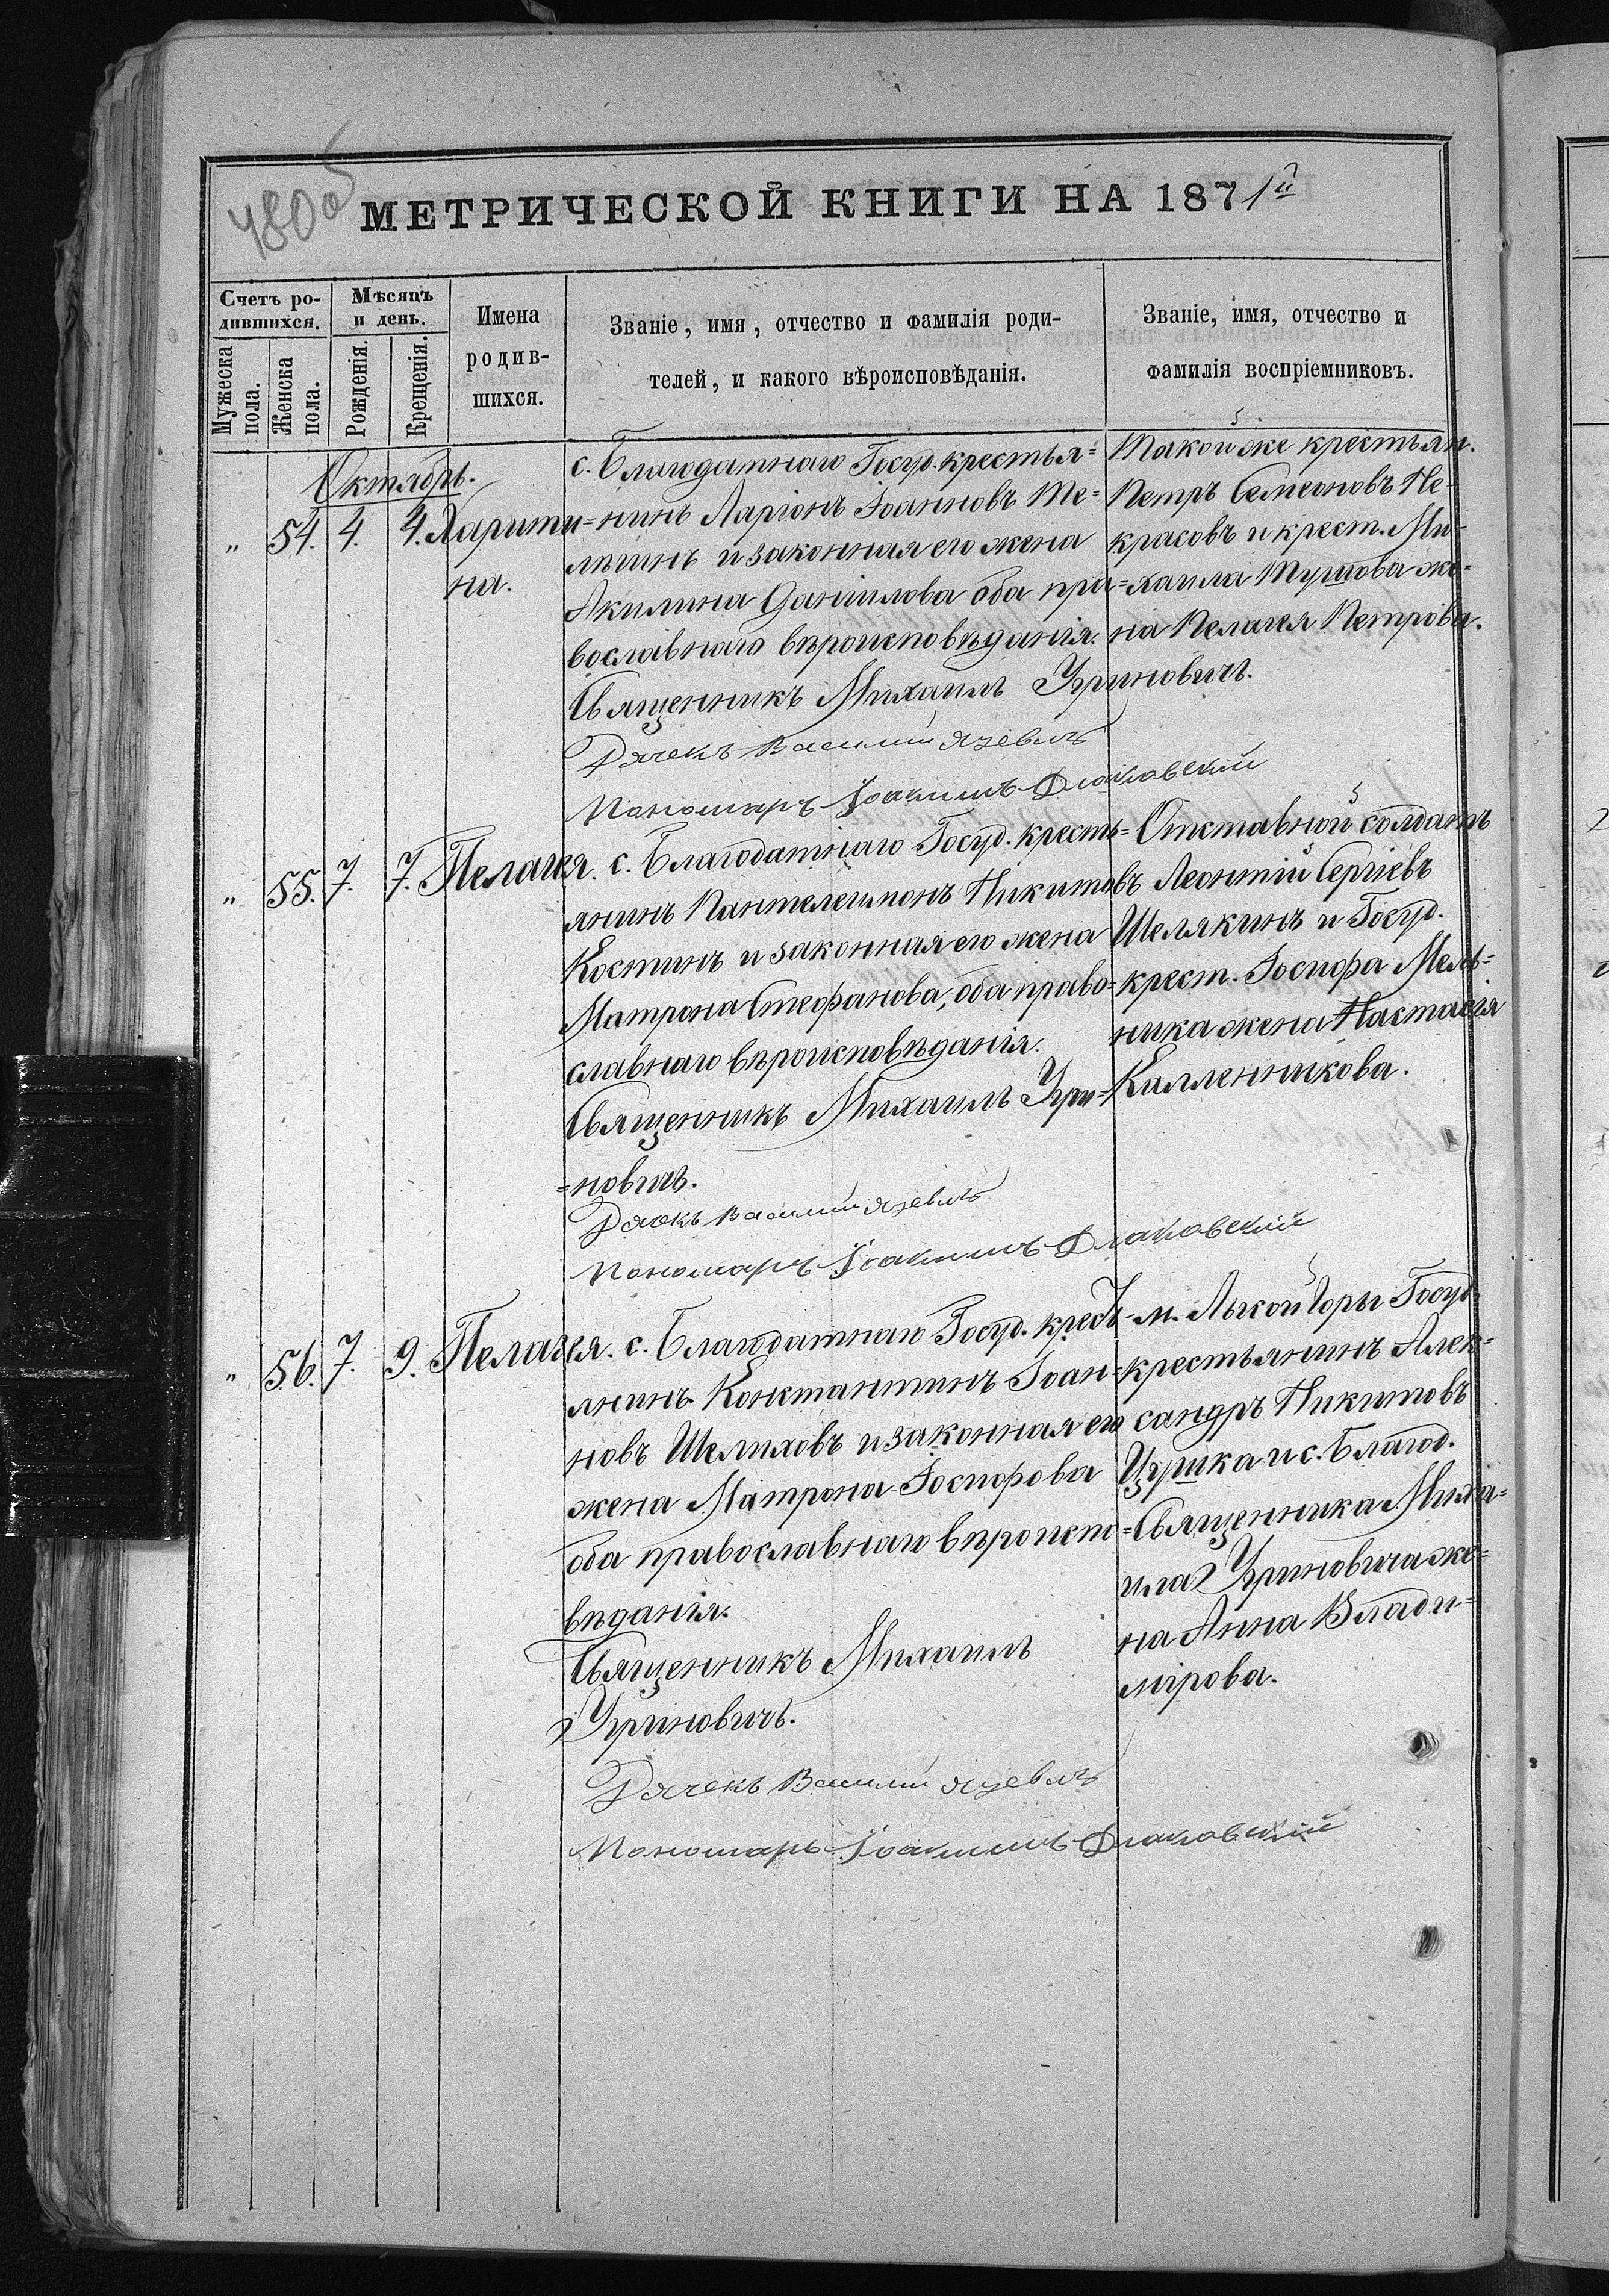 480об
МЕТРИЧЕСКОЙ КНИГИ НА 1871й
Счетъ ро-
дившихся.
Мужеска
пола.
Женска
пола.
Мѣсяцъ
и день.
Рожденія.
Крещенія.
Имена
родив-
шихся.
Званіе, имя, отчество и фамилія роди-
телей, и какого вѣроисповѣданія.
Званіе, имя, отчество и
фамилія воспріемниковъ.
Октябрь.
" 54. 4. 4. Харити=
на.
с. Благодатнаго Госуд. крестья=
нинъ Ларіонъ Іоанновъ Те=
лѣшнъ и законная его жена
Акилина Даніилова оба пра=
вославнаго вѣроисповѣданія.
Священникъ Михаилъ Угриновичъ.
Дячекъ Василий Язевичъ
Пономарь Іоакимъ Длаковскій
Такой же крестьян.
Петръ Семеоновъ Не-
красовъ и крест. Ми-
хаила Тушова же-
на Пелагея Петрова.
" 55. 7. 7. Пелагея.
с. Благодатнаго Госуд. кресть=
янинъ Пантелеимонъ Никитовъ
Костинъ и законная его жена
Матрона Стефанова, оба право=
славнаго вѣроисповѣданія.
Священникъ Михаилъ Угри=
=новичъ.
Дячокъ Василий Язевичъ
Пономарь Іоакимъ Длаковскій
Отставной солдатъ
Леонтій Сергіевъ
Шелякинъ и Госуд.
крест. Іосифа Мель=
ника жена Настасія
Каленникова.
" 56. 7. 9. Пелагея.
с. Благодатнаго Госуд. крест-
янинъ Константинъ Іоан=
новъ Шелиховъ и законная его
жена Матрона Іосифова
оба православнаго вѣроиспо=
вѣданія.
Священникъ Михаилъ
Угриновичъ.
Дячекъ Василий Язевичъ
Пономарь Іоакимъ Длаковскій
м. Лысой Горы Госуд.
крестьянинъ Алек=
сандръ Никитовъ
Цушка и с. Благод.
Священника Миха=
ила Угриновича же=
на Анна Влади=
мірова.